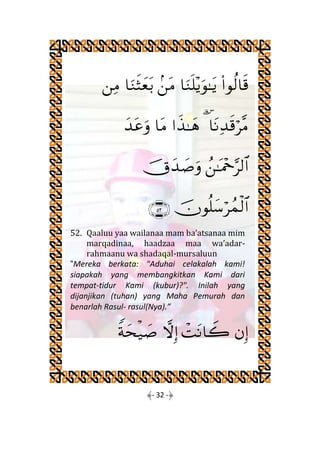 قَالُوا۟ يَـٰوَيْلَنَا مَنۢ بَعَثَنَا مِن
مَّرْقَدِنَا ۜ ۗ هَـٰذَا مَا وَعَدَ
ٱلرَّحْمَـٰنُ وَصَدَقَ
ٱلْمُرْسَلُونَ ﴿٥٢﴾
52. Qaaluu yaa wailanaa mam ba’atsanaa mim
marqadinaa, haadzaa maa wa’adar-
rahmaanu wa shadaqal-mursaluun
"Mereka berkata: "Aduhai celakalah kami!
siapakah yang membangkitkan Kami dari
tempat-tidur Kami (kubur)?". Inilah yang
dijanjikan (tuhan) yang Maha Pemurah dan
benarlah Rasul- rasul(Nya).”
إِن كَانَتْ إِلَّا صَيْحَةً
- 32 -